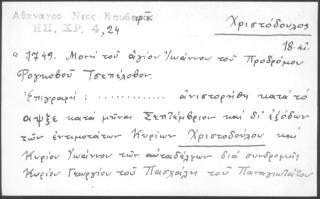 Αθηναγο Νεος Κουβαρᾶς
ΗΠ. ΧΡ. 4, 24
Χριστόδουλος
18 αἰ.
"1749. Μονή τοῦ ἁγίου Ἰωάννου τοῦ Προδρόμου
Ῥογκοβοῦ Τσεπέλοβον.
Ἐπιγραφή: ............ ἀνιστορήθη κατά τό
αψξε κατά μῆνα Σεπτέμβριον καί δι' ἐξόδων
τῶν ἐντιμοτάτων Κυρίων Χριστοδούλου καί
Κυρίου Ἰωάννου τῶν αὐταδέλφων διά συνδρομῆς
Κυρίου Γεωργίου τοῦ Πασχάλη τοῦ Παναγιωτάτου